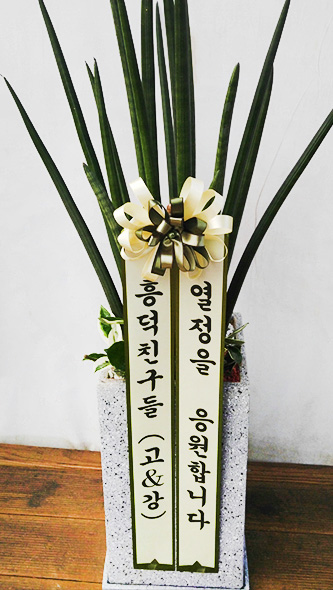 열정을 응원합니다
흥덕친구들 (고&강)